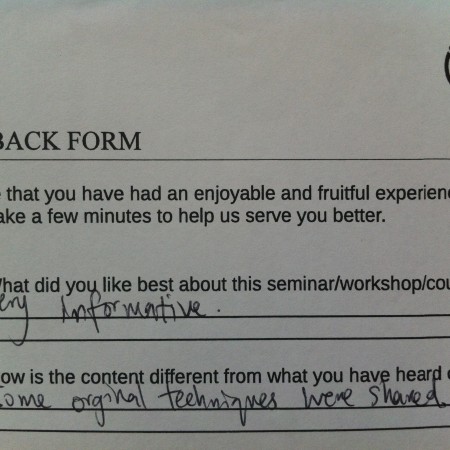 BACK FORM
that you have had an enjoyable and fruitful experien
ake a few minutes to help us serve you better.
hat did you like best about this seminar/workshop/cou
ery Informative.
ow is the content different from what you have heard
ome orginal techniques were shared.